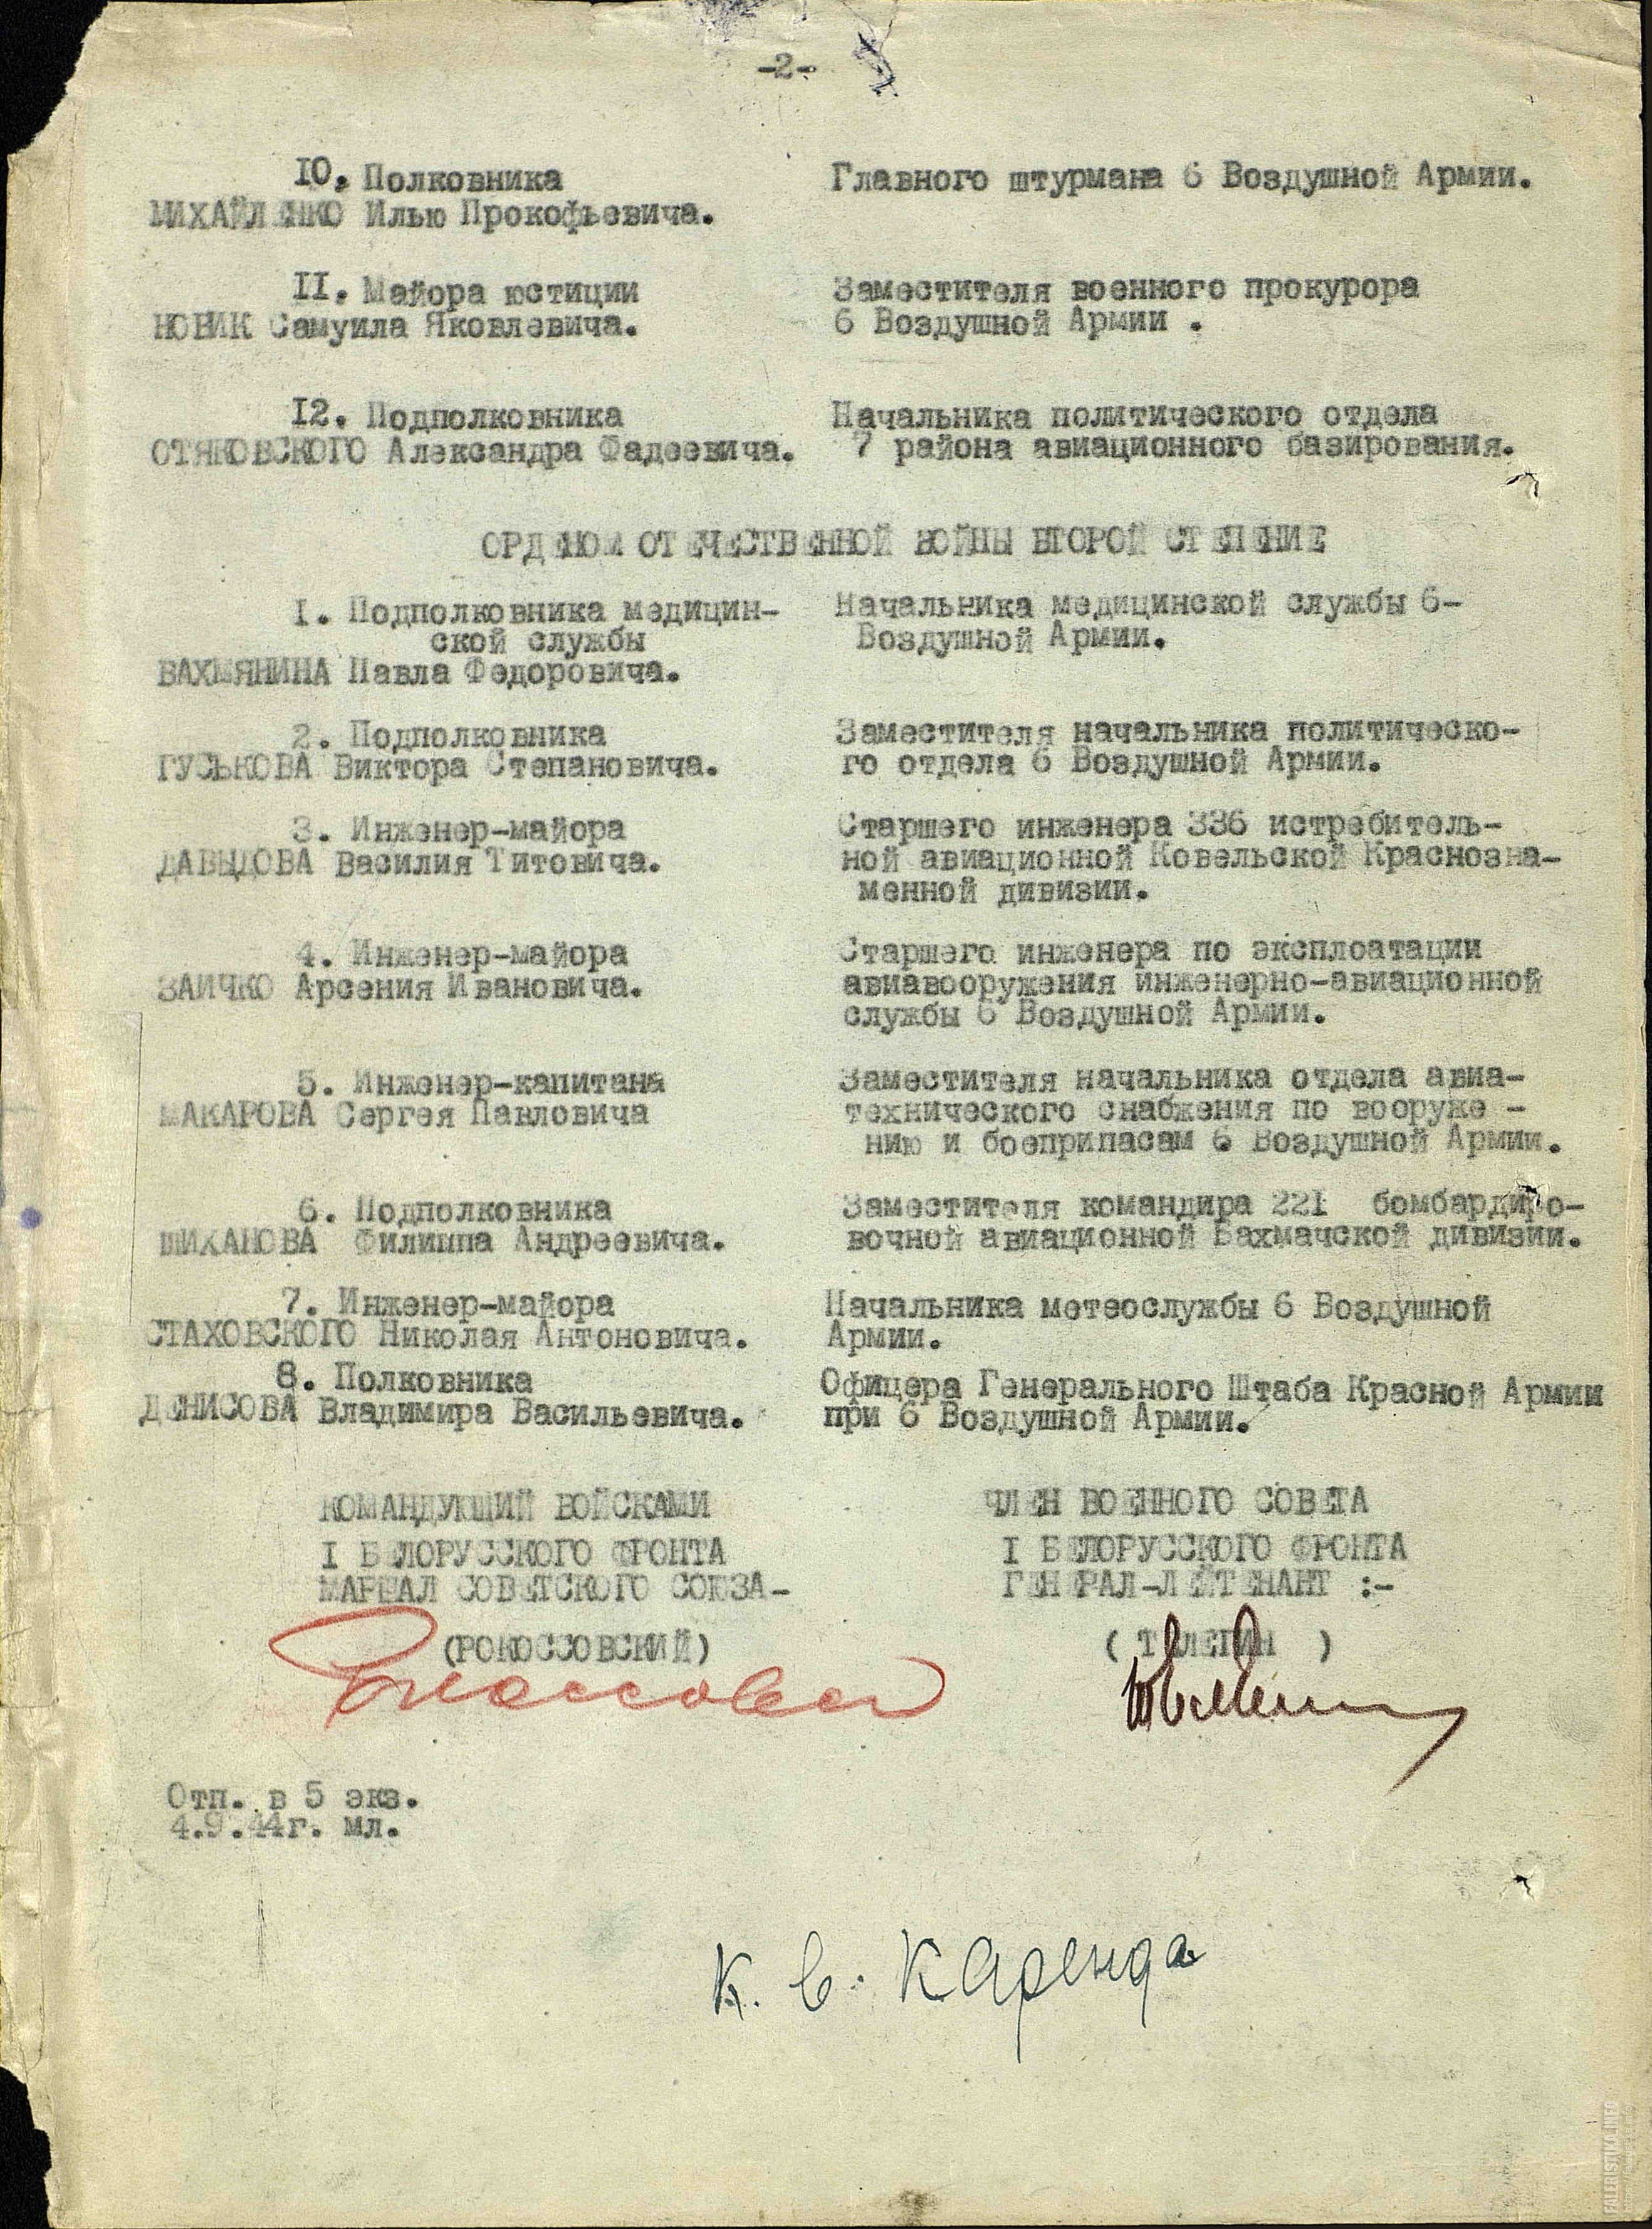 -2-
10. Полковника Главного штурмана 6 Воздушной Армии.
МИХАЙЛЕНКО Илью Прокофьевича.
11. Майора юстиции Заместителя военного прокурора
НОВИК Самуила Яковлевича. 6 Воздушной Армии .
12. Подполковника Начальника политического отдела
ОТЯКОВСКОГО Александра Фадеевича. 7 района авиационного базирования.
ОРДЕНОМ ОТЕЧЕСТВЕННОЙ ВОЙНЫ ВТОРОЙ СТЕПЕНИЕ
1. Подполковника медицин- Начальника медицинской службы 6-
ской службы Воздушной Армии.
ВАХМЯНИНА Павла Федоровича.
2. Подполковника Заместителя начальника политическо-
ГУСЬКОВА Виктора Степановича. го отдела 6 Воздушной Армии.
3. Инженер-майора Старшего инженера 336 истребитель-
ДАВЫДОВА Василия Титовича. ной авиационной Ковельской Краснозна-
менной дивизии.
4. Инженер-майора Старшего инженера по эксплоатации
ЗАИЧКО Арсения Ивановича. авиавооружения инженерно-авиационной
службы 6 Воздушной Армии.
5. Инженер-капитана Заместителя начальника отдела авиа-
МАКАРОВА Сергея Павловича технического снабжения по вооруже -
нию и боеприпасам 6 Воздушной Армии.
6. Подполковника Заместителя командира 221 бомбардиро-
ШИКАНОВА Филиппа Андреевича. вочной авиационной Бахмачской дивизии.
7. Инженер-майора Начальника метеослужбы 6 Воздушной
СТАХОВСКОГО Николая Антоновича. Армии.
8. Полковника Офицера Генерального Штаба Красной Армии
ДЕНИСОВА Владимира Васильевича. при 6 Воздушной Армии.
КОМАНДУЮЩИЙ ВОЙСКАМИ ЧЛЕН ВОЕННОГО СОВЕТА
I БЕЛОРУССКОГО ФРОНТА I БЕЛОРУССКОГО ФРОНТА
МАРШАЛ СОВЕТСКОГО СОЮЗА- ГЕНЕРАЛ-ЛЕЙТЕНАНТ :-
(РОКОССОВСКИЙ) ( ТЕЛЕГИН )
Отп. в 5 экз.
4.9.44г. мл.
К. в. Каренда
FALERISTIKA.INFO